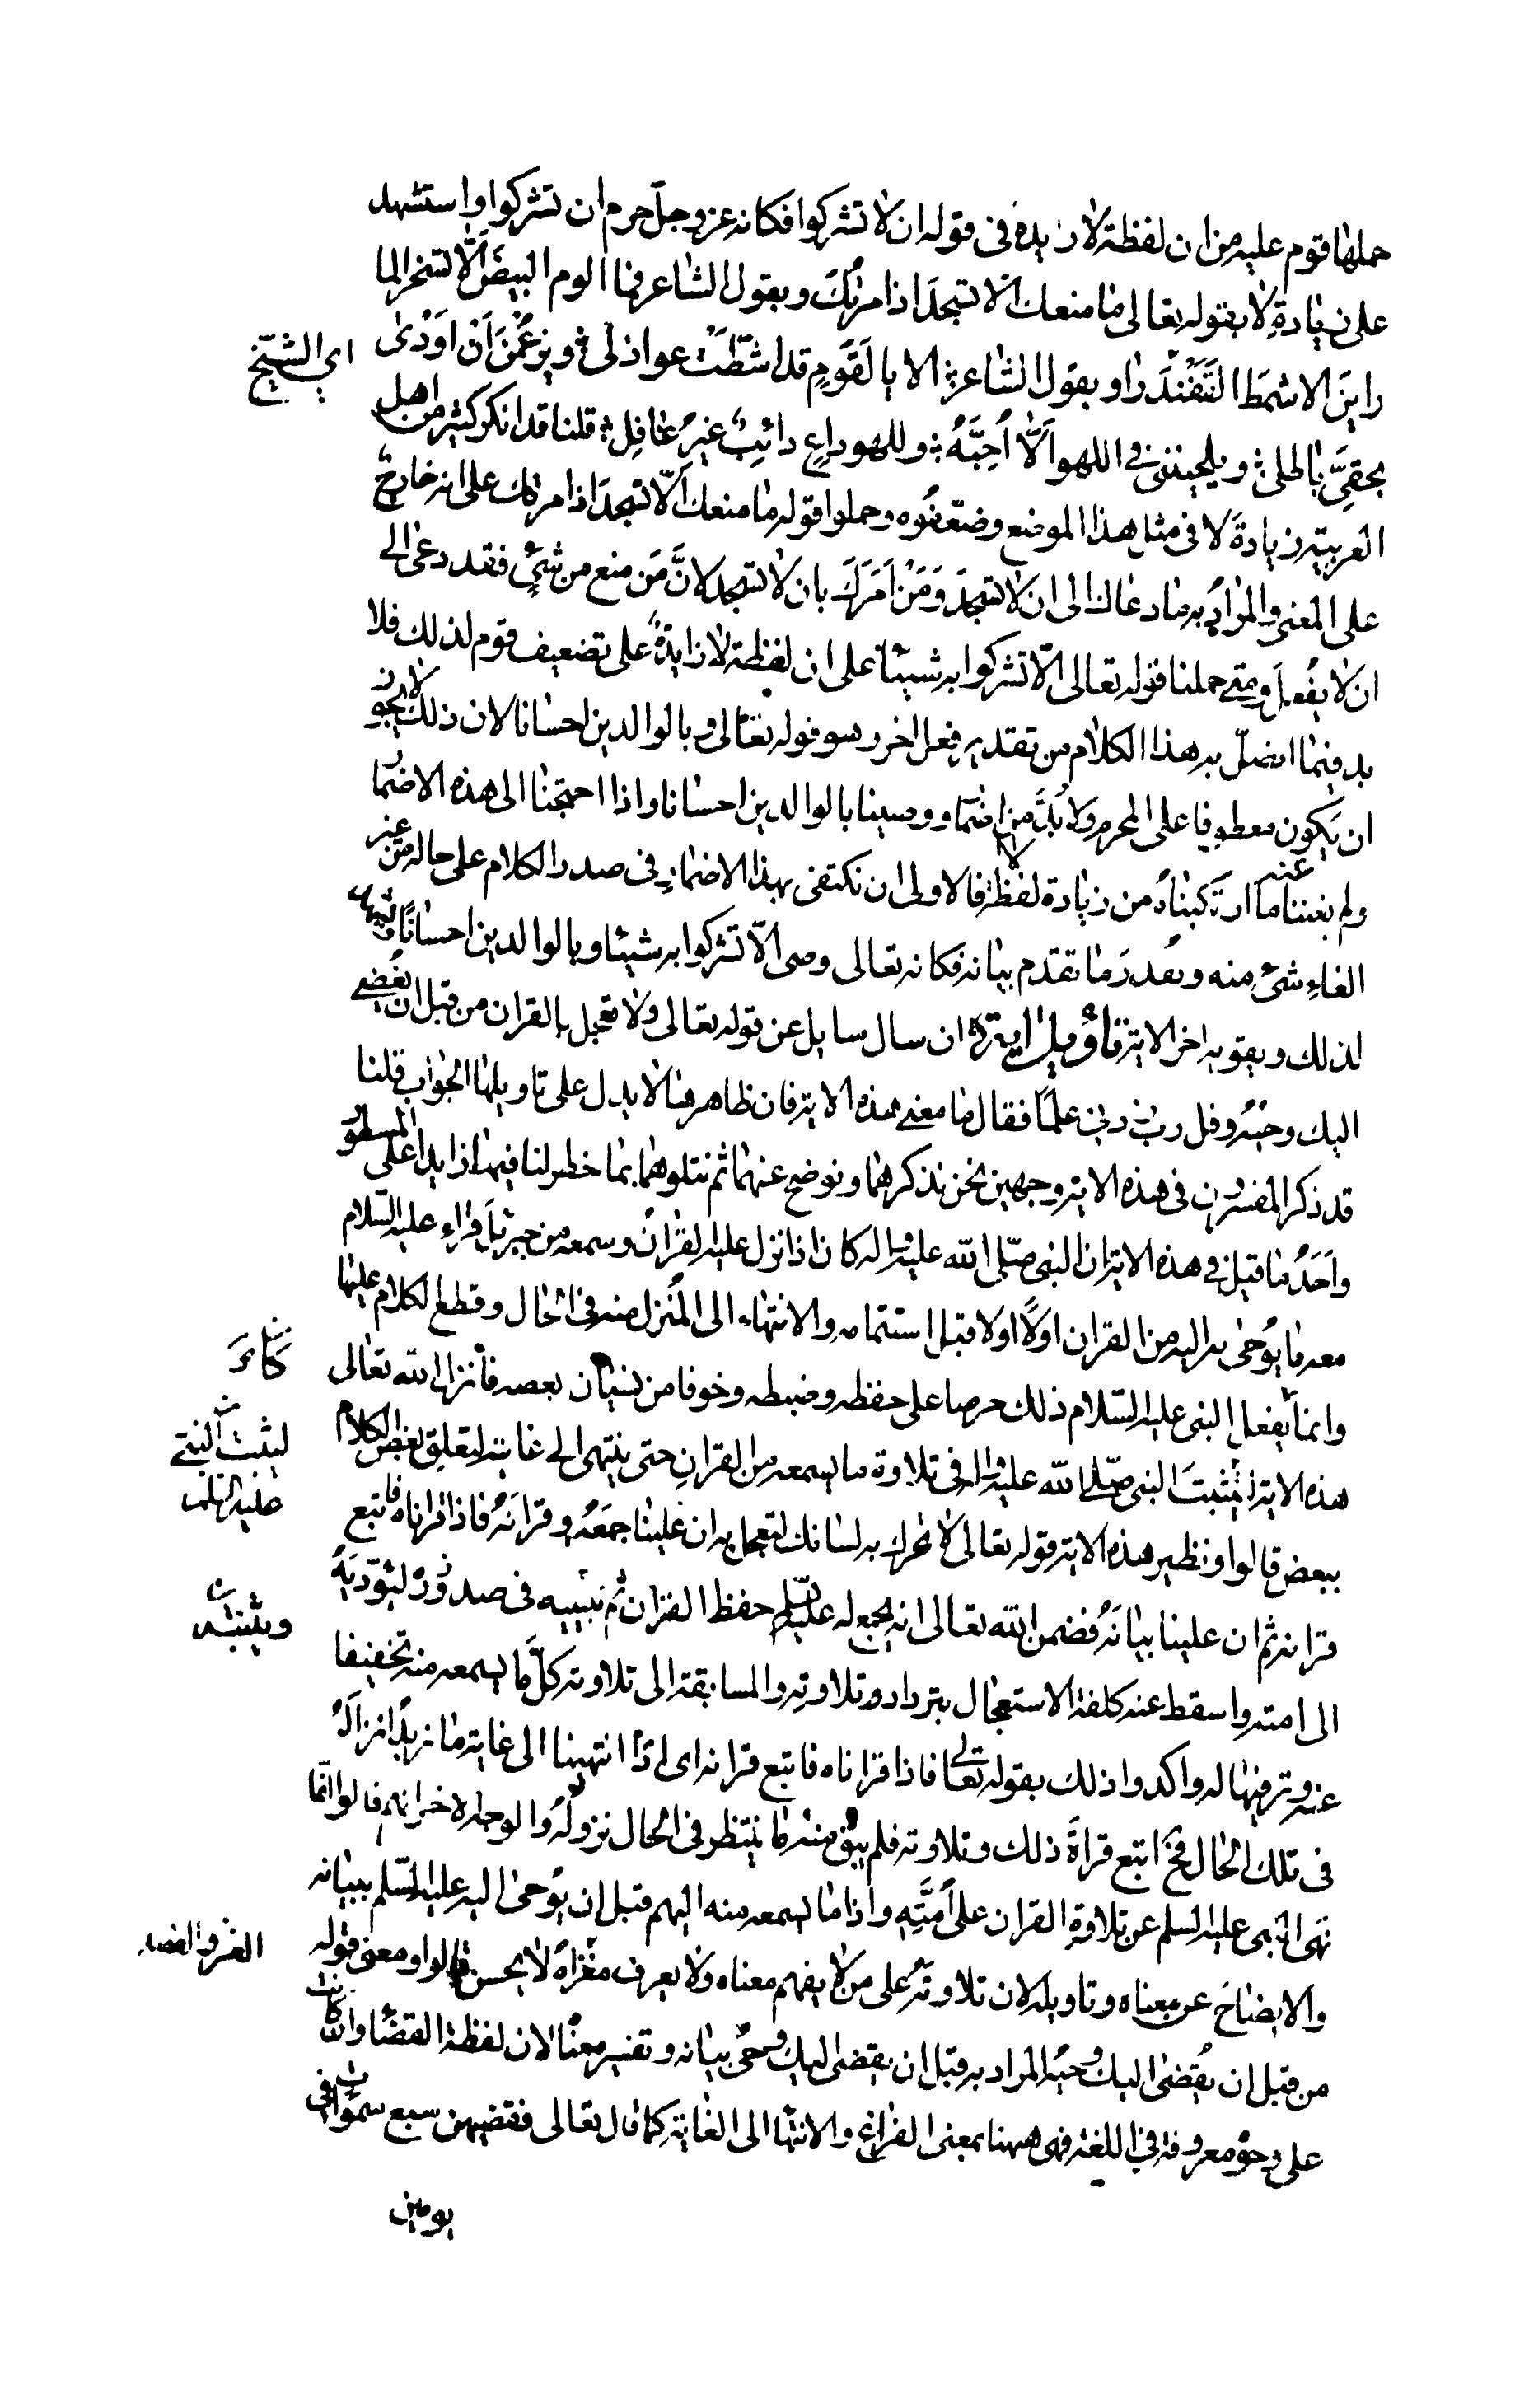 حملها قوم عليه من ان لفظة لا زايدة في قوله ان لا تشركوا فكانه عز وجل حرم ان تشركوا واستشهد
على زيادة لا بقوله تعالى ما منعك الا تسجد اذ امرتك وبقول الشاعر فما الوم البيض الا تسخرا لما
راين الاشمط القفندرا وبقول الشاعر الا يا لقوم قد اشطت عواذلي ويزعمن ان اودى
اي الشيخ
بحقي باطلي ويلحينني في اللهو الا احبه وللهو داع دائب غير غافل قلنا قد انكر كثير من اهل
العربية زيادة لا في مثل هذا الموضع وضعفوه وحملوا قوله ما منعك الا تسجد اذ امرتك على انه خارج
على المعنى والمراد به ما دعاك الى ان لا تسجد ومن امرك بان لا تسجد لان من منع من شيء فقد دعى الى
ان لا يفعل ومتى حملنا قوله تعالى الا تشركوا به شيئا على ان لفظة لا زايدة على تضعيف قوم لذلك فلا
بد فيما اتصل به هذا الكلام من تقدير فعل اخر وهو قوله تعالى وبالوالدين احسانا لان ذلك لا يجوز
ان يكون معطوفا على المحرم ولا بد من اضمار ووصينا بالوالدين احسانا واذا احتجنا الى هذه الاضمار
ولم يغننا عنه ما ارتكبناه من زيادة لفظة لا فالاولى ان نكتفي بهذا الاضمار في صدر الكلام على حاله من غير
الغاء شيء منه ونقدر ما تقدم بيانه فكانه تعالى وصى الا تشركوا به شيئا وبالوالدين احسانا ويشهد
لذلك ويقويه اخر الاية تاويل اية ان سال سايل عن قوله تعالى ولا تعجل بالقران من قبل ان يقضى
اليك وحيه وقل رب زدني علما فقال ما معنى هذه الاية فان ظاهرها لا يدل على تاويلها الجواب قلنا
قد ذكر المفسرون في هذه الاية وجهين نحن نذكرهما ونوضح عنهما ثم نتلوهما بما خطر لنا فيها زايدا على المسطور
واحد ما قيل في هذه الاية ان النبي صلى الله عليه واله كان اذا نزل عليه القران وسمعه من جبرئيل قراء عليه السلام
معه ما يوحى به اليه من القران اولا اولا قبل استتمامه والانتهاء الى المنزل منه في الحال وقطع الكلام عليها
وانما يفعل النبي عليه السلام ذلك حرصا على حفظه وضبطه وخوفا من نسيان بعضه فانزل الله تعالى
كان
هذه الاية ليثبت النبي صلى الله عليه واله في تلاوة ما يسمعه من القران حتى ينتهى الى غايته لتعلق بعض الكلام
ليثبت النبي
عليه السلم
ببعض قالوا ونظير هذه الاية قوله تعالى لا تحرك به لسانك لتعجل به ان علينا جمعه وقرانه فاذا قراناه فاتبع
قرانه ثم ان علينا بيانه فضمن الله تعالى انه يجمع له عليه السلم حفظ القران ثم يثبته في صدره ليؤديه
ويثبته
الى امته واسقط عنه كلفة الاستعجال بترداد تلاوته والمسابقة الى تلاوته كل ما يسمعه منه تخفيفا
عنه وترفيها له واكدوا ذلك بقوله تعالى فاذا قراناه فاتبع قرانه اى اذا انتهينا الى غاية ما نريد انزاله
في تلك الحال فح اتبع قراة ذلك وتلاوته فلم يبق منه ما ينتظر في الحال نزوله والوجه الاخر انهم قالوا انما
نهى النبي عليه السلم عن تلاوة القران على امته واذا ما يسمعه منه اليهم قبل ان يوحى اليه عليه السلم ببيانه
والايضاح عن معناه وتاويله لان تلاوته على من لا يفهم معناه ولا يعرف مغزاه لا يحسن قالوا ومعنى قوله
من قبل ان يقضى اليك وحيه المراد به قبل ان يقضى اليك وحي بيانه وتفسير معناه لان لفظة القضا وان كانت
على وجوه معروفة في اللغة فهي ههنا بمعنى الفراغ والانتها الى الغاية كما قال تعالى فقضيهن سبع سموات في
يومين